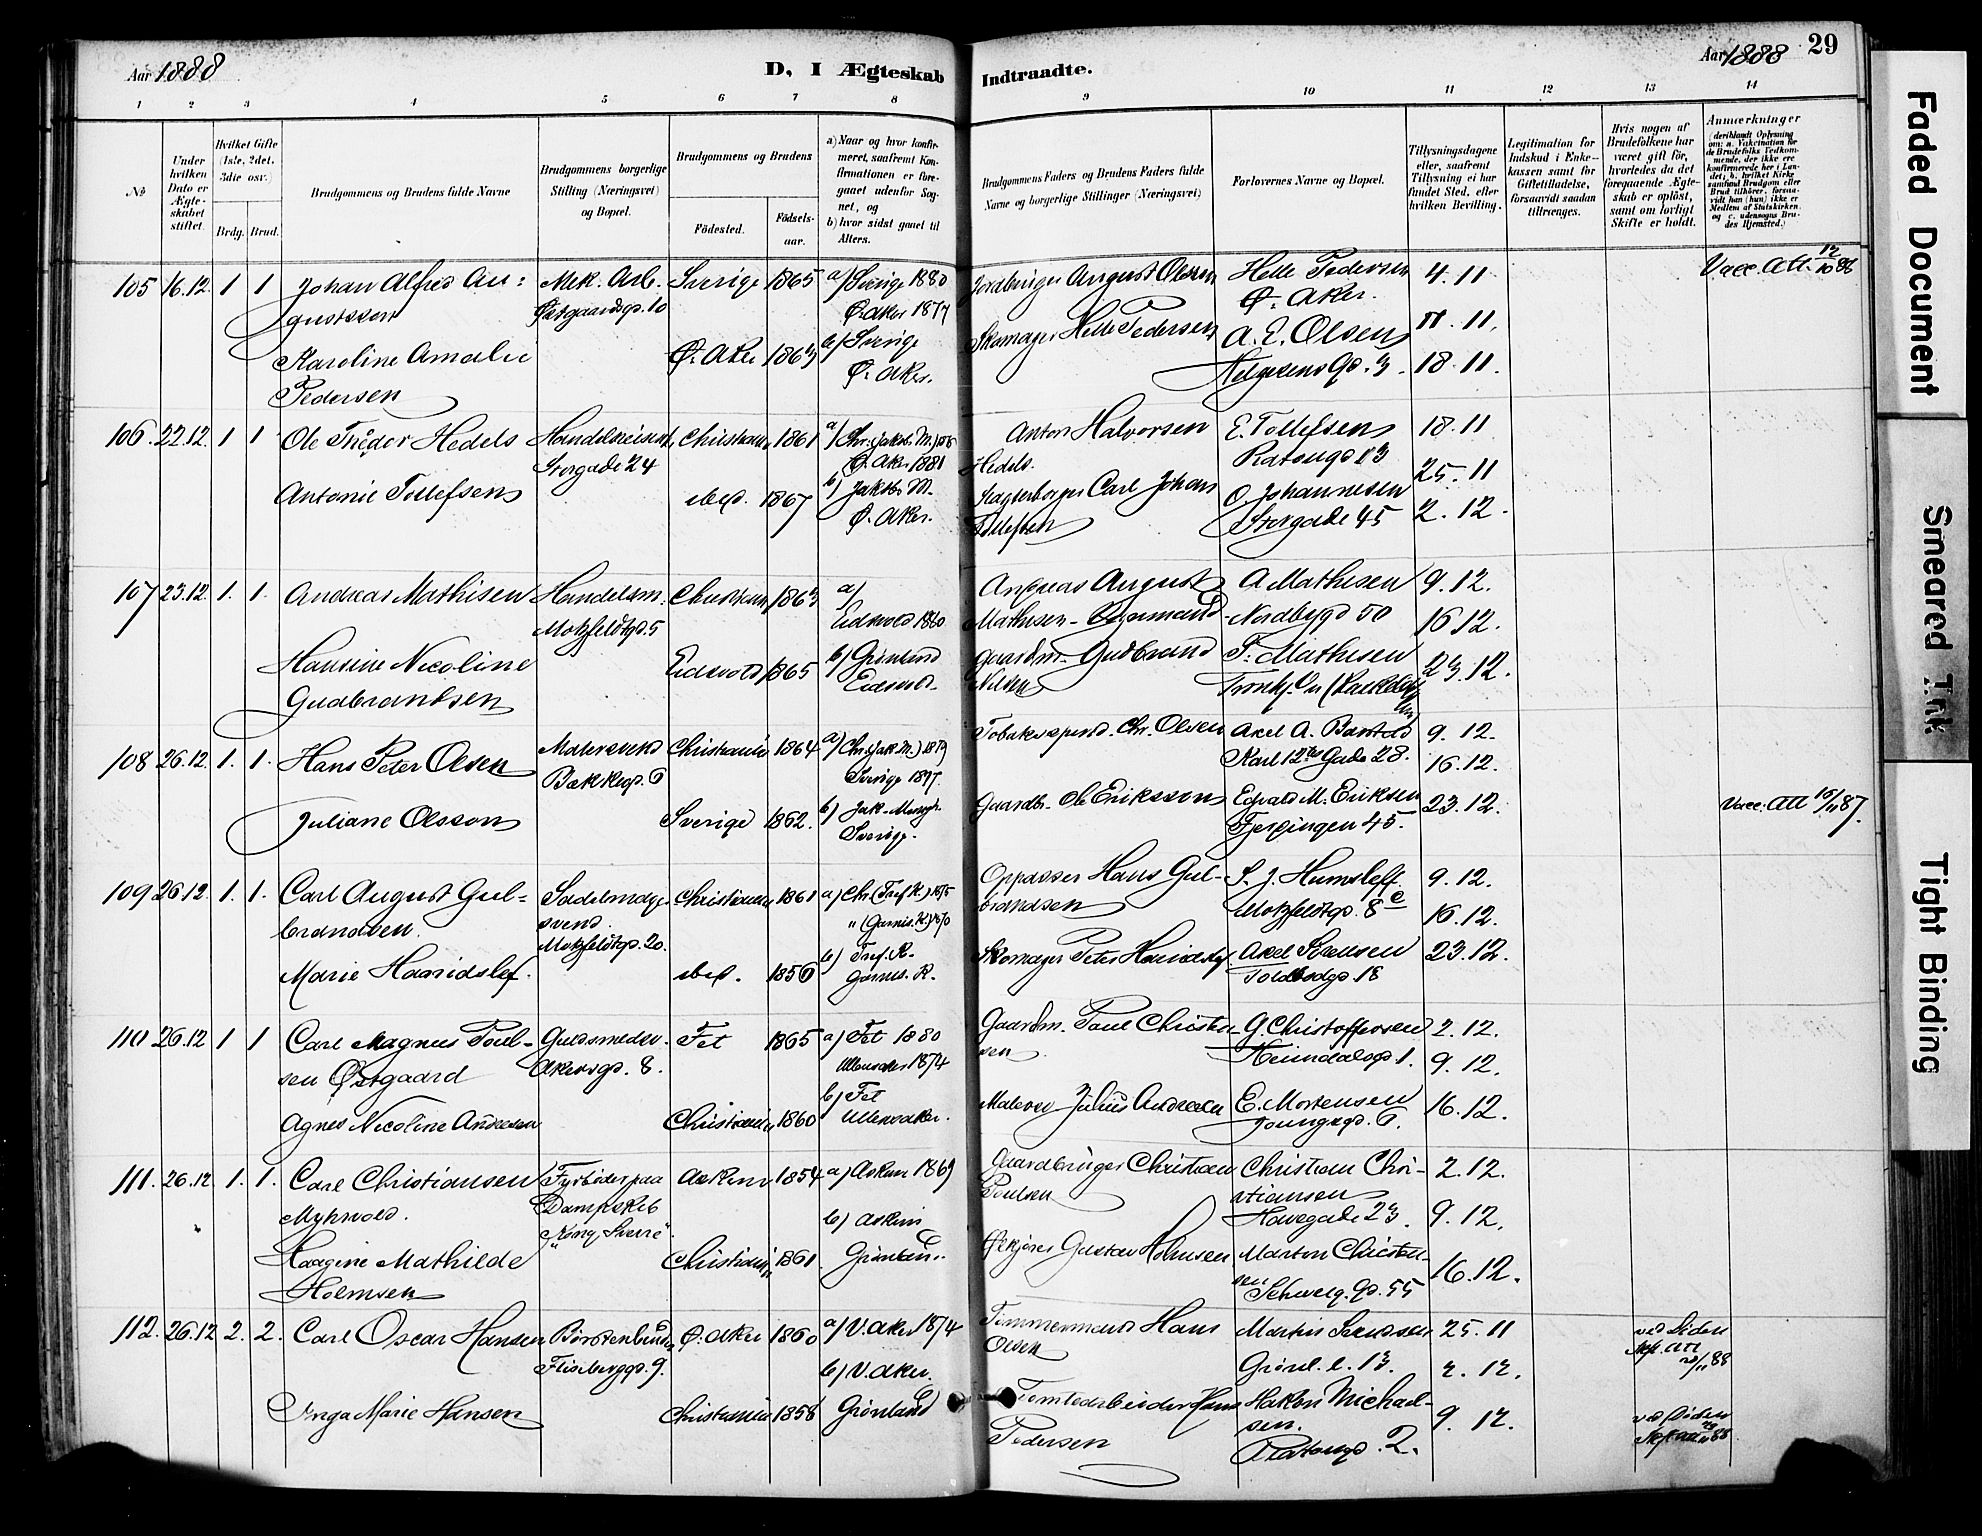 Aar 1888
D, I Ægteskab
Indtraadte.
Aar 1888
29
1 2 3 4 5 6 7 8 9 10 11 12 13 14
№
Under hvilken Dato er Ægteskabet stiftet.
Hvilket Gifte (1ste, 2det, 3die osv.)
Brdg. Brud.
Brudgommens og Brudens fulde Navne
Brudgommens borgerlige Stilling (Næringsvei) og Bopæl.
Brudgommens og Brudens
Fødested.
Fødselsaar.
a) Naar og hvor konfirmeret, saafremt Konfirmationen er foregaaet udenfor Sognet, og
b) hvor sidst gaaet til Alters.
Brudgommens Faders og Brudens Faders fulde Navne og borgerlige Stillinger (Næringsvei)
Forlovernes Navne og Bopæl.
Tillysningsdagene eller, saafremt Tillysning ei har fundet Sted, efter hvilken Bevilling.
Legitimation for Indskud i Enkekassen samt for Giftetilladelse, forsaavidt saadan tiltrænges.
Hvis nogen af Brudefolkene har været gift før, hvorledes da det foregaaende Ægteskab er opløst, samt om lovligt Skifte er holdt.
Anmærkninger (deriblandt Oplysning om: a. Vakcination for de Brudefolks Vedkommende, der ikke ere konfirmerede her i Landet; b. hvilket Kirkesamfund Brudgom eller Brud tilhører, forsaavidt han (hun) ikke er Medlem af Statskirken, og c. udensogns Brudes Hjemsted.)
105 16.12 1 1 Johan Alfred Au=
gustsson
Mek. Arb.
Østgaardsgd. 10
Sverige 1865
a) Sverige 1880
Ø. Aker 1877
b) Sverige
Ø. Aker.
Jordbruger August Olsson
Helle Pedersen
Ø. Aker.
4.11
11.11.
18.11.
Vacc. Att.
Karoline Amalie
Pedersen
Ø. Aker 1863
Skomager Helle Pedersen
A. E. Olsen
Helgesens Gd. 3.
106. 22.12. 1 1 Ole Theodor Hedels
Storgade 24
Christiania 1861
a) Chr. (Jakobs M.)
Ø. Aker 1881
b) Jakobs M.
Ø. Aker.
Anton Halvorsen
Hedels.
E. Tollefsen
18.11
25.11
2.12.
Antonie Tollefsen
ibid. 1867
Carl Johan
Tollefsen
O. Johannesen
Storgade 45
107 23.12. 1. 1. Andreas Mathisen
Handelsm.
Motzfeldtgd. 5
Christiania 1863
a)
Eidsvold 1880
b) Grønland
Eidsvold.
Andreas August
Mathisen
A Mathisen
Nordbygd 50
9.12.
16.12.
23.12.
Hansine Nicoline
Gudbrandsen
Eidsvold 1865
Gaardm. Gudbrand
Nilsen
T. Mathisen
108 26.12. 1. 1. Hans Peter Olsen
Malersvend
Bakkegd. 6
Christiania 1864
a) Chr. (Jak. M.) 1879
Sverige 1877.
b) Jak. Menigh.
Sverige.
Chr. Olsen
Axel A.
Karl 12tes Gade 28.
9.12.
16.12.
23.12.
Juliane Olsson
Sverige 1862.
Gaardbr. Ole Eriksson
Edvald M. Eriksen
Fjerdingen 45.
Vacc. Att 87.
109 26.12. 1. 1. Carl August Gul=
brandsen.
Sadelmagersvend.
Motzfeldtgd. 20.
Christiania 1861
a) Chr. (Tref. K.) 1875
" (Garnis. K.) 1870
b) Tref. K.
Garnis. K.
Oppasser Hans Gul-
brandsen
Motzfeldtgd. 8
9.12.
16.12.
23.12.
Marie
ibid. 1856
Skomager Peter
Axel Sørensen
Toldbodgd. 18
110 26.12 1 1 Carl Magnus Poul-
sen Østgaard
Guldsmedsv.
Akersgd. 8.
Fet 1865
a) Fet 1880
Ullensaker 1874
b) Fet
Ullensaker.
Gaardm. Paul Christen-
sen
G. Christoffersen
Heimdalsgd. 1.
2.12.
9.12.
16.12.
Agnes Nicoline Andresen
Christiania 1860
Julius Andresen
E. Mortensen
Youngsgd. 6.
111. 26.12 1. 1. Carl Christiansen
Myhrvold.
Fyrbøder paa
Dampskib
"Kong Sverre".
Askim 1854
a) Askim 1869
b) Askim
Grønland.
Gaardbruger Christian
Poulsen
Christian Chri-
stiansen
Havegade 23.
2.12.
9.12.
16.12.
Haagine Mathilde
Holmsen
Christiania 1861
Gustav Holmsen
Marton Christen-
sen
Schweig. Gd. 55
112. 26.12 2. 2. Carl Oscar Hansen
Børstenbinder
Flisberggd. 9.
Ø. Aker 1860
a) V. Aker 1874
b) V. Aker.
Grønland
Tømmermand Hans
Olsen
Martin Svendsen
Grønl. l. 13.
25.11
2.12.
9.12.
ved Døden
Skft. Att 88
Inga Marie Hansen
Christiania 1858
Tomtearbeider Hans
Pedersen
Hakon Michael-
sen.
ved Døden
Skft. Att 88
Faded Document
Smeared Ink
Tight Binding